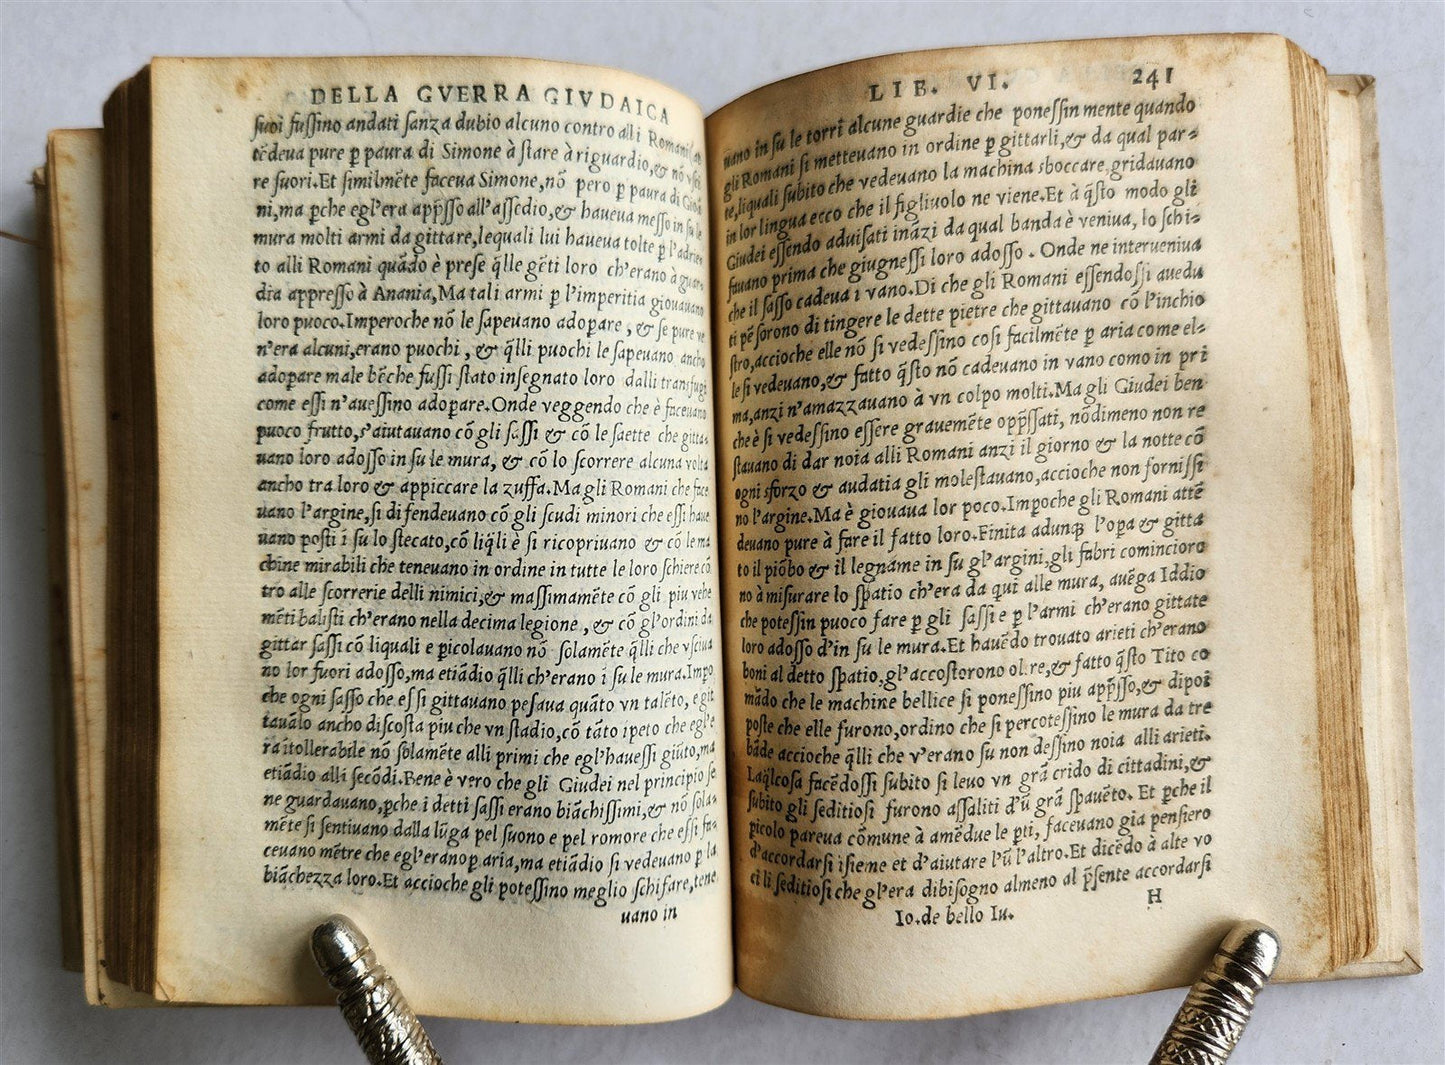 DELLA GVERRA GIVDAICA
ſuoi fuſſino andati ſanza dubio alcuno contro alli Romani
tēdeua pure ꝑ paura di Simone à ſtare à riguardio,& nō vſci
re fuori.Et ſimilmēte faceua Simone,nō pero ꝑ paura di Gioā
ni,ma ꝑche egl'era app̄ſſo all'aſſedio,& haueua meſſo in ſu le
mura molti armi da gittare,lequali lui haueua tolte ꝑ l'adrieto
to alli Romani quādo è preſe q̄lle gēti loro ch'erano à guar
dia appreſſo à Anania,Ma tali armi ꝑ l'imperitia giouauano
loro puoco.Imperoche nō le ſapeuano adoꝑare , & ſe pure ve
n'era alcuni,erano puochi , & q̄lli puochi le ſapeuano ancho
adoꝑare male bēche fuſſi ſtato inſegnato loro dalli transfugi
come eſſi n'aueſſino adoꝑare.Onde veggendo che è faceuano
puoco frutto,s'aiutauano cō gli ſaſſi & cō le ſaette che gitta-
uano loro adoſſo in ſu le mura, & cō lo ſcorrere alcuna volta
ancho tra loro & appiccare la zuffa.Ma gli Romani che face
uano l'argine,ſi difendeuano cō gli ſcudi minori che eſſi haue
uano poſti ī ſu lo ſtecato,cō liq̄li è ſi ricopriuano & cō le ma
chine mirabili che teneuano in ordine in tutte le loro ſchiere cō
tro alle ſcorrerie delli nimici,& maſſimamēte cō gli piu vehe
mēti baliſti ch'erano nella decima legione , & cō gl'ordini da
gittar ſaſſi cō liquali e ꝑicolauano nō ſolamēte q̄lli che vſciua
no lor fuori adoſſo,ma etiādio q̄lli ch'erano ī ſu le mura.Impo
che ogni ſaſſo che eſſi gittauano peſaua quāto vn talēto, e git
tauālo ancho diſcoſta piu che vn ſtadio,cō tāto īpeto che egl'e
ra ītollerabile nō ſolamēte alli primi che egl'haueſſi giūto,ma
etiādio alli ſecōdi.Bene è vero che gli Giudei nel principio ſe
ne guardauano,ꝑche i detti ſaſſi erano biāchiſſimi,& nō ſola-
mēte ſi ſentiuano dalla lūga pel ſuono e pel romore che eſſi fa-
ceuano mētre che egl'erano ꝑ aria,ma etiādio ſi vedeuano ꝑ la
biāchezza loro.Et accioche gli poteſſino meglio ſchifare,tene
uano in
LIB. VI. 241
uano in ſu le torri alcune guardie che poneſſin mente quando
gli Romani ſi metteuano in ordine ꝑ gittarli,& da qual par-
te,liquali ſubito che vedeuano la machina sboccare,gridauano
in lor lingua ecco che il figliuolo ne viene.Et à q̄ſto modo gli
Giudei eſſendo aduiſati ināzi da qual banda è veniua, lo ſchi-
fauano prima che giugneſſi loro adoſſo . Onde ne interueniua
che il ſaſſo cadeua ī vano.Di che gli Romani eſſendoſſi auedu
ti pēſorono di tingere le dette pietre che gittauano cō l'inchio
ſtro,accioche elle nō ſi vedeſſino coſi facilmēte ꝑ aria come el-
le ſi vedeuano,& fatto q̄ſto nō cadeuano in vano come in pri
ma,anzi n'amazzauano à vn colpo molti.Ma gli Giudei ben
che è ſi vedeſſino eſſere grauemēte opp̄ſſati, nōdimeno non re
ſtauano di dar noia alli Romani anzi il giorno & la notte cō
ogni sforzo & audatia gli moleſtauano,accioche non forniſſi
no l'argine.Ma è giouaua lor poco.Imꝑoche gli Romani attē
deuano pure à fare il fatto loro.Finita adunqꝫ l'oꝑa & gitta
to il piōbo & il legname in ſu gl'argini,gli fabri cominciorо
no à miſurare lo ſpatio ch'era da qui alle mura, auēga Iddio
che poteſſin puoco fare ꝑ gli ſaſſi e ꝑ l'armi ch'erano gittate
loro adoſſo d'in ſu le mura.Et hauēdo trouato arieti ch'erano
boni al detto ſpatio,gl'accoſtorono ol re,& fatto q̄ſto Tito co
mādo che le machine bellice ſi poneſſino piu app̄ſſo,& dipoi
poſte che elle furono,ordino che ſi percoteſſino le mura da tre
bāde accioche q̄lli che v'erano ſu non deſſino noia alli arieti.
Laq̄lcoſa facēdoſſi ſubito ſi leuo vn grā crido di cittadini,&
ſubito gli ſeditioſi furono aſſaliti d'ū grā ſpauēto. Et ꝑche il
ꝑicolo pareua cōmune à amēdue le ꝑti, faceuano gia penſiero
d'accordarſi īſieme et d'aiutare l'ū l'altro.Et dicēdo à alte vo
ci li ſeditioſi che gl'era dibiſogno almeno al p̄ſente accordarſi
H
Io.de bello Iu.